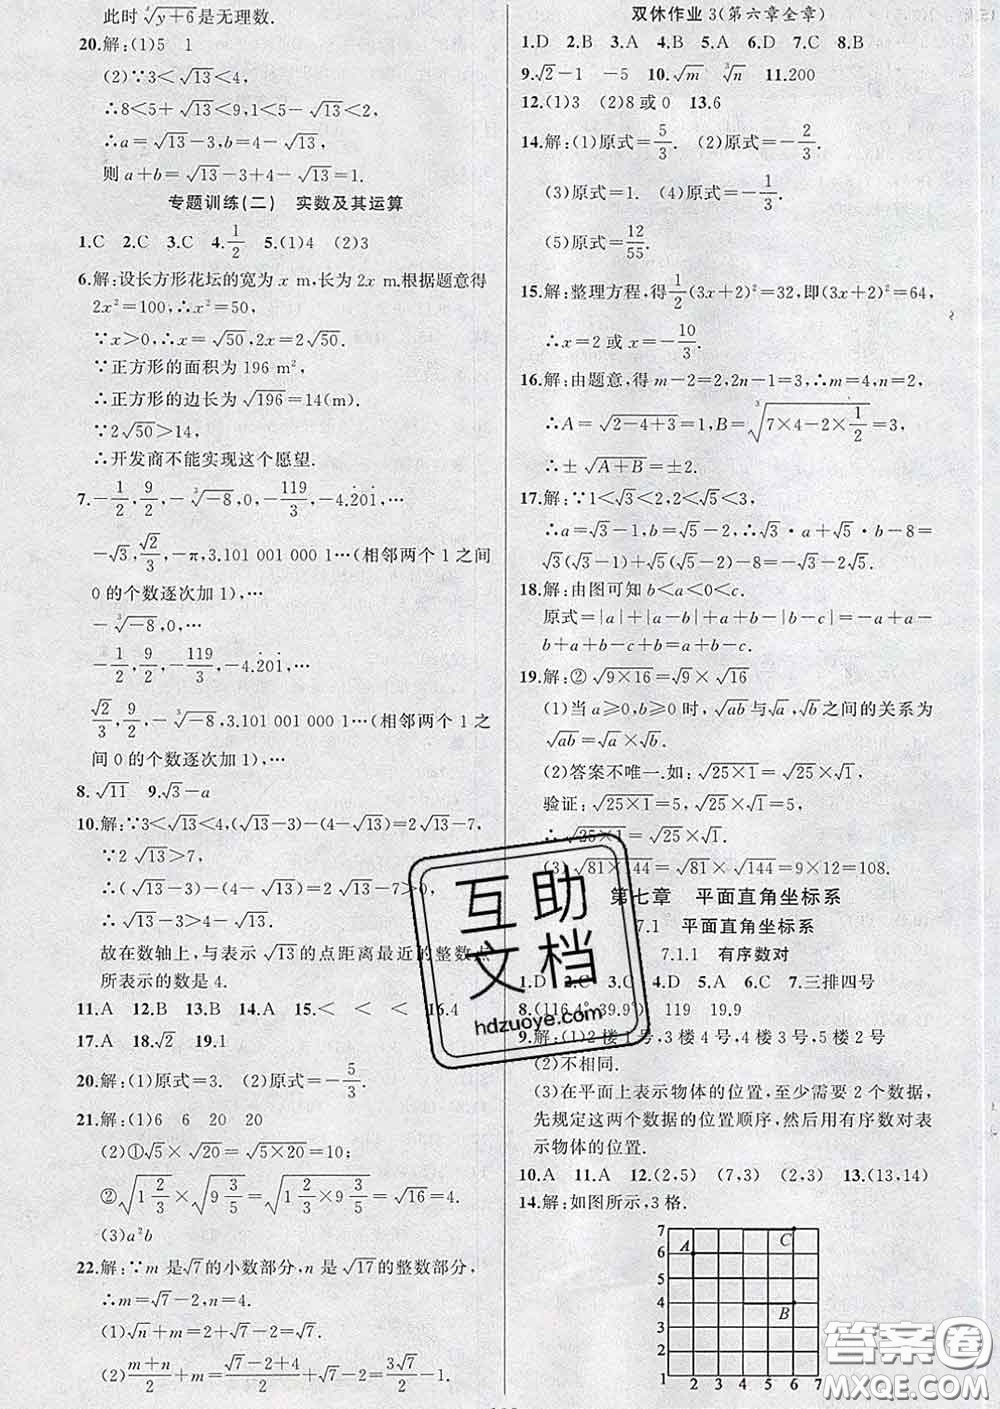 此时∛y+6是无理数.
20.解:(1)5 1
(2)∵3<√13<4,
∴8<5+√13<9,1<5-√13<2,
∴a=√13-3,b=4-√13,
则a+b=√13-3+4-√13=1.
专题训练(二) 实数及其运算
1.C 2.C 3.C 4.1/2 5.(1)4 (2)3
6.解:设长方形花坛的宽为x m,长为2x m.根据题意得
2x²=100,∴x²=50,
∵x>0,∴x=√50,2x=2√50.
∵正方形的面积为196 m²,
∴正方形的边长为√196=14(m).
∵2√50>14,
∴开发商不能实现这个愿望.
7.-1/2,9/2,-∛-8,0,-119/3,-4.2̇01̇,…
-√3,√2/3,-π,3.101 001 000 1…(相邻两个1之间
0的个数逐次加1),…
-∛-8,0,…
-1/2,9/2,-119/3,-4.2̇01̇,…
√2/3,9/2,-∛-8,3.101 001 000 1…(相邻两个1之
间0的个数逐次加1),…
8.√11 9.√3-a
10.解:∵3<√13<4,(√13-3)-(4-√13)=2√13-7,
∵2√13>7,
∴(√13-3)-(4-√13)=2√13-7>0,
∴√13-3>4-√13.
故在数轴上,与表示√13的点距离最近的整数点
所表示的数是4.
11.A 12.B 13.B 14.A 15.< < < 16.4
17.A 18.√2 19.1
20.解:(1)原式=3. (2)原式=-5/3.
21.解:(1)6 6 20 20
(2)①√5×√20=√5×20=√100=10;
②√1 2/3×√9 3/5=√1 2/3×9 3/5=√16=4.
(3)a²b
22.解:∵m是√7的小数部分,n是√17的整数部分,
∴m=√7-2,n=4.
(1)√n+m=2+√7-2=√7.
(2)m+n/2=√7-2+4/2=√7+2/2
双休作业3(第六章全章)
1.D 2.B 3.A 4.B 5.A 6.D 7.C 8.B
9.√2-1 -5 10.√m ∛n 11.200
12.(1)3 (2)8或0 13.6
14.解:(1)原式=5/3. (2)原式=-2/3.
(3)原式=1. (4)原式=-1/3.
(5)原式=12/55.
15.解:整理方程,得1/2(3x+2)²=32,即(3x+2)²=64,
∴x=2或x=-10/3.
16.解:由题意,得m-2=2,2n-1=3,∴m=4,n=2,
∴A=√2-4+3=1,B=∛7×4-2×1/2=3,
∴±√A+B=±2.
17.解:∵1<√3<2,2<√5<3,
∴a=√3-1,b=√5-2,∴√3·a+√5·b-8=
√3(√3-1)+√5(√5-2)-8=-√3-2√5.
18.解:由图可知b<a<0<c.
原式=|a|+|a-b|+a+b-|b-c|=-a+a-
b+a+b-c+b=a+b-c.
19.解:②√9×16=√9×√16
(1)当a≥0,b≥0时,√ab与√a,√b之间的关系为
√ab=√a×√b.
(2)答案不唯一.如:√25×1=√25×√1.
验证:√25×1=5,√25×√1=5,
∴√25×1=√25×√1.
(3)√81×144=√81×√144=9×12=108.
第七章 平面直角坐标系
7.1 平面直角坐标系
7.1.1 有序数对
1.D 2.C 3.C 4.D 5.A 6.C 7.三排四号
8.(116.4°,39.9°) 119 19.9
9.解:(1)2楼1号,3楼4号,4楼3号,5楼2号
(2)不相同.
(3)在平面上表示物体的位置,至少需要2个数据,
先规定这两个数据的位置顺序,然后用有序数对表
示物体的位置.
10.A 11.A 12.(2,5) (7,3) (2,3) 13.(13,14)
14.解:如图所示,3格.
7 C
6 A
5
4 B
3
2
1
1 2 3 4 5 6 7
互助
文档
hdzuoye.com
答案圈
MXQE.COM